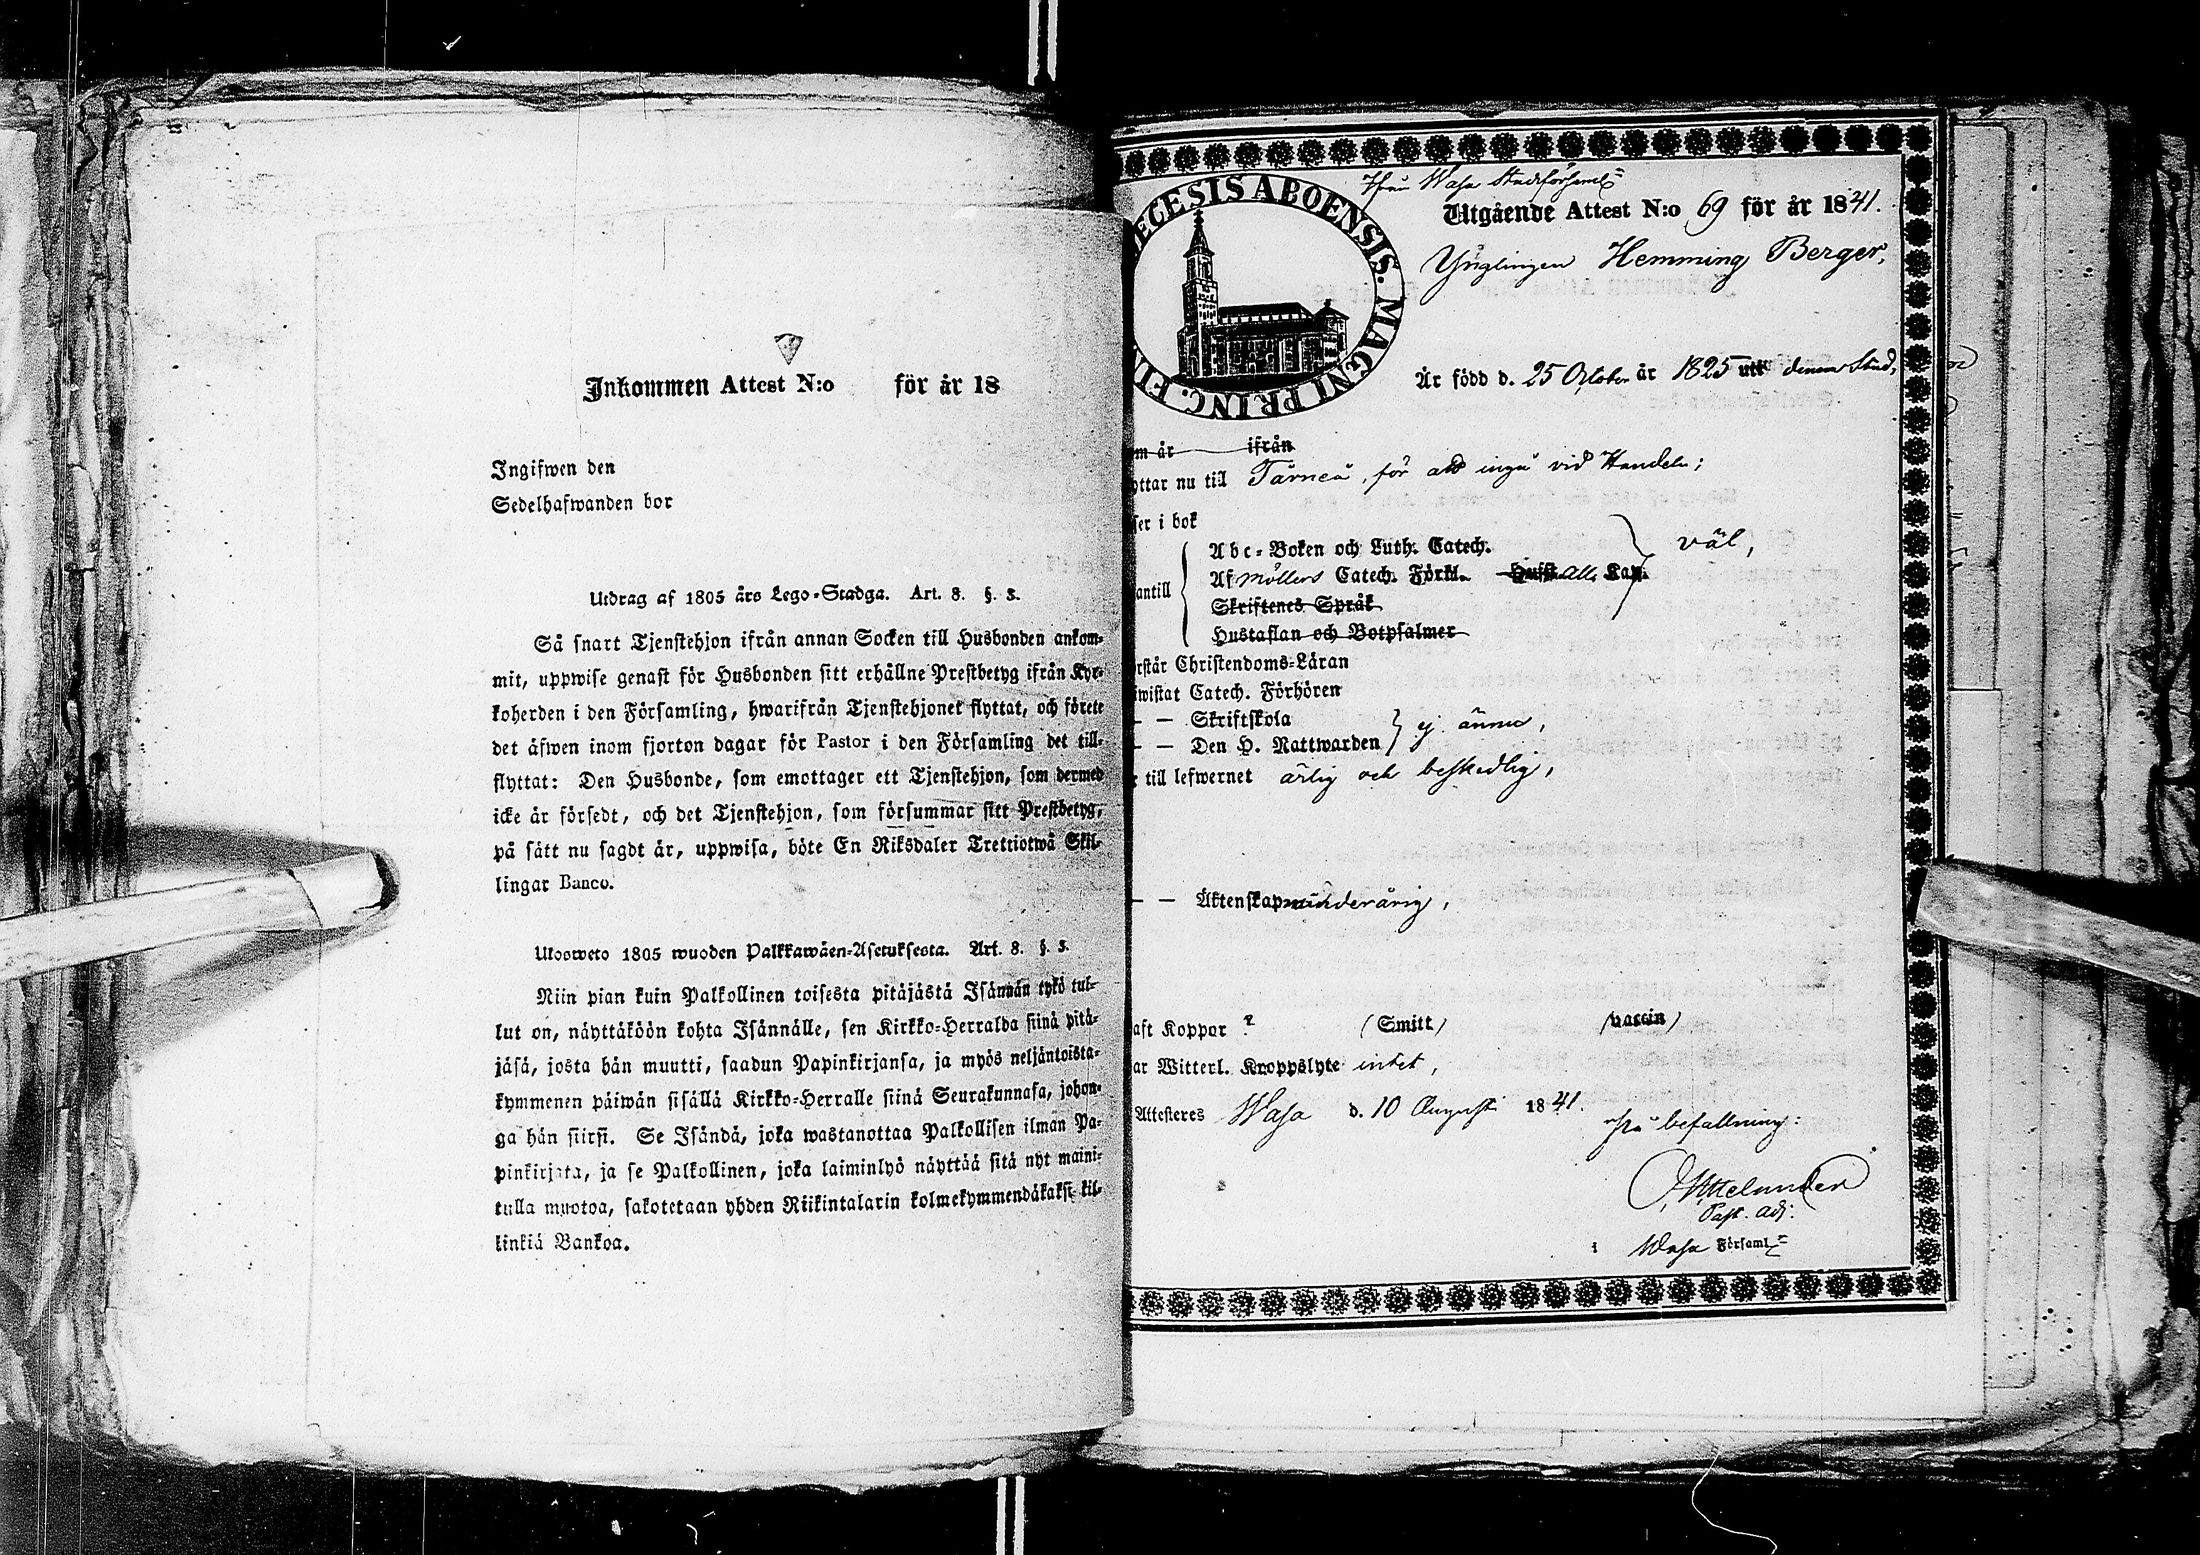 Inkommen Attest N:o för år 18
Ingifwen den
Sedelhafwanden bor
Utdrag af 1805 års Lego-Stadga. Art. 8. §. 3.
Så snart Tjenstehjon ifrån annan Socken till Husbonden ankom-
mit, uppwise genast för Husbonden sitt erhållne Prestbetyg ifrån Kyr-
koherden i den Församling, hwarifrån Tjenstehjonet flyttat, och förete
det äfwen inom fjorton dagar för Pastor i den Församling det till-
flyttat: Den Husbonde, som emottager ett Tjenstehjon, som dermed
icke är försedt, och det Tjenstehjon, som försummar sitt Prestbetyg,
på sätt nu sagdt är, uppwisa, böte En Riksdaler Trettiotwå Skil-
lingar Banco.
Ulosweto 1805 wuoden Palkkawäen-Asetuksesta. Art. 8. §. 3.
Niin pian kuin Palkollinen toisesta pitäjästä Isännän tykö tul-
lut on, näyttäköön kohta Isännälle, sen Kirkko-Herralda siinä pitä-
jäsä, josta hän muutti, saadun Papinkirjansa, ja myös neljäntoista-
kymmenen päiwän sisällä Kirkko-Herralle siinä Seurakunnasa, johon-
ga hän siirsi. Se Isändä, joka wastanottaa Palkollisen ilman Pa-
pinkirjata, ja se Palkollinen, joka laiminlyö näyttää sitä nyt maini-
tulla muotoa, sakotetaan yhden Riikintalarin kolmekymmendäkaksi kil-
linkiä Bankoa.
ECESIS ABOENSIS. MAGNI PRINC. FI
Ifrån Wasa Stadsförsaml
Utgående Attest N:o 69 för år 1841.
Ynglingen Hemming Berger,
Är född d. 25 October år 1825 uti denna Stad,
om år ifrån
yttar nu till Torneå, för att ingå vid Handeln;
ser i bok
Abc-Boken och Luth. Catech.
väl,
Af Möllers Catech. Förkl. Alla Kap.
antill
Skriftenes Språk
Hustaflan och Botpsalmer
rstår Christendoms-Läran
wistat Catech. Förhören
— — Skriftskola
ej ännu,
— — Den H. Nattwarden
r till lefwernet ärlig och beskedlig,
— — Äktenskap minderårig,
aft Koppor ? (Smitt) (vaccin)
ar Witterl. Kroppslyte intet,
Attesteres Wasa d. 10 Augusti 1841.
På befallning:
Past. adj.
i Wasa Församl